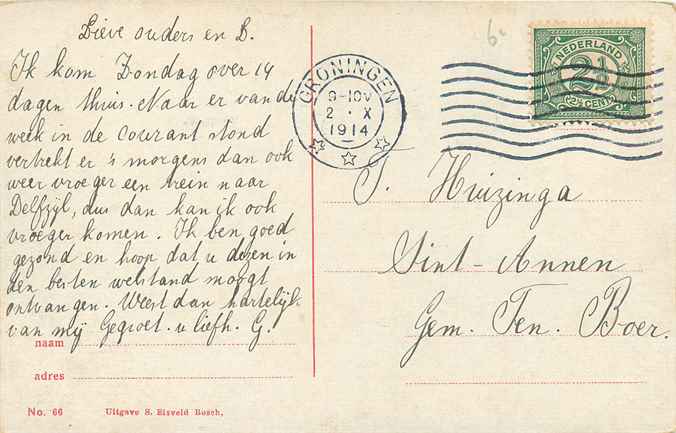 Lieve ouders en B.
Ik kom Zondag over 14
dagen thuis. Naar er van de
week in de courant stond
vertrekt er 's morgens dan ook
weer vroeger een trein naar
Delfzijl, dus dan kan ik ook
vroeger komen. Ik ben goed
gezond en hoop dat u dezen in
den besten welstand moogt
ontvangen. Weest dan hartelijk
van mij Gegroet. u liefh. G.
naam
adres
No. 66
Uitgave S. Eisveld Bosch,
6
GRONINGEN
2 · X
1914
NEDERLAND
2½
(2½ CENT)
Huizinga
Sint-Annen
Gem. Ten. Boer.